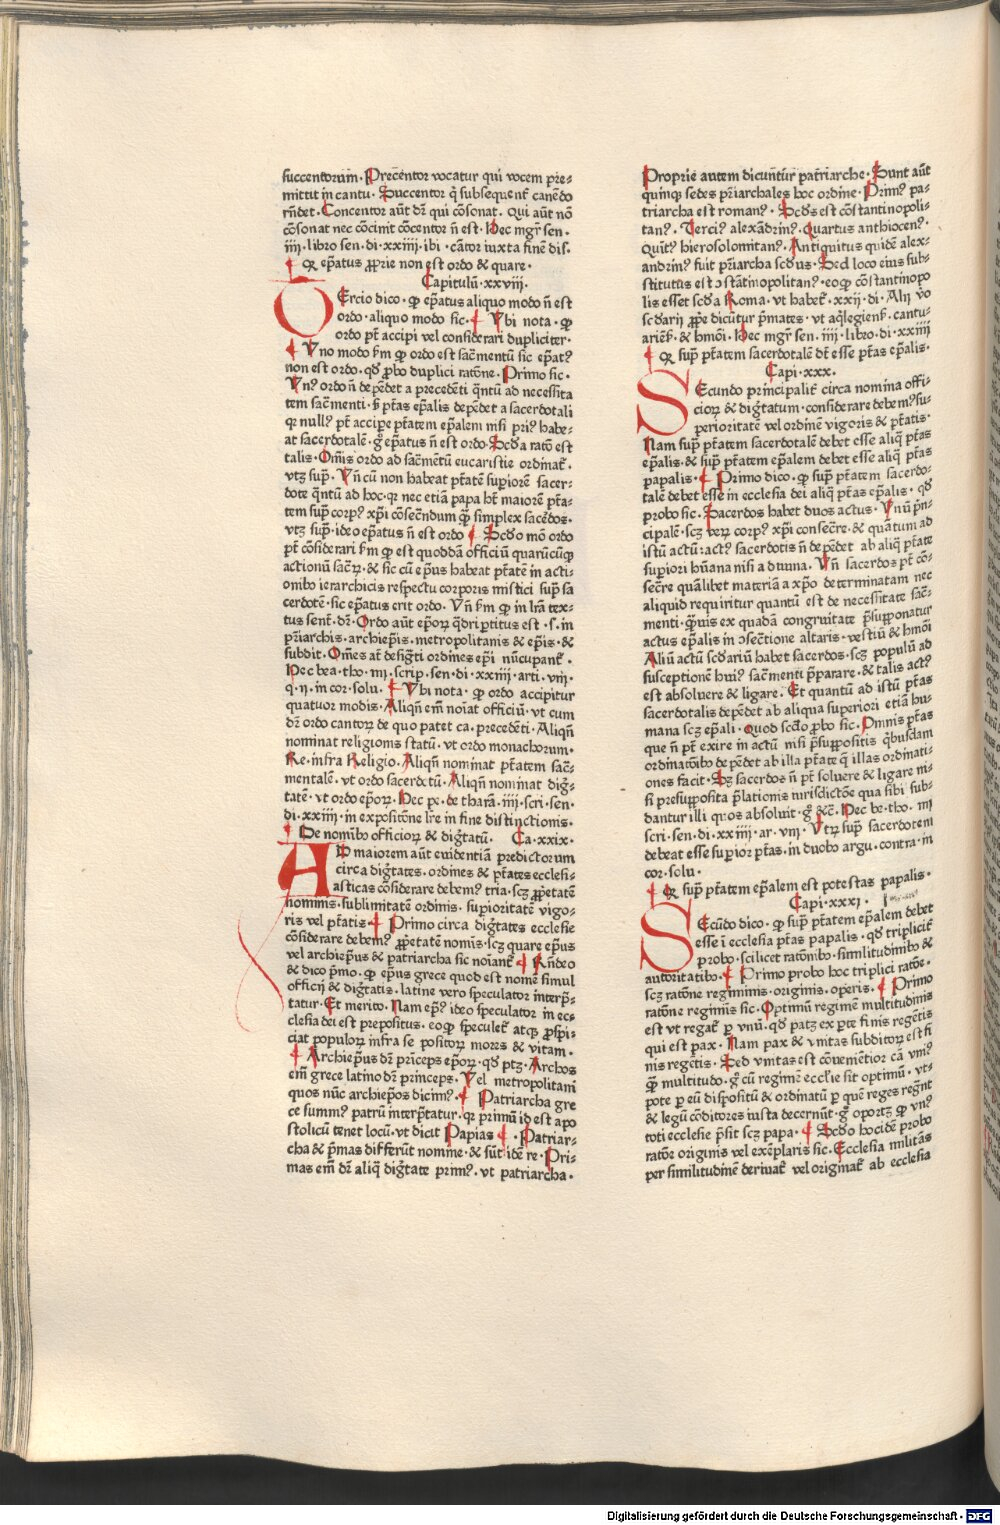 succentorum. Precẽntor vocatur qui vocem pre-
mittit in cantu. Succentor q̃ subsequent̃ canẽdo
rñdet. Concentor aũt dr̃ qui cõsonat. qui aũt nõ
cõsonat nec cõcinit cõcentor ñ est. Hec mgr̃ sen.
iiij. libro sen. di. xxiiii. ibi. cãtor iuxta finẽ dis.
¶ Qr ep̃atus ꝓprie non est ordo & quare.
Capitulũ. xxviii.
TErcio dico. ꝙ ep̃atus aliquo modo ñ est
ordo. aliquo modo sic. ¶ Vbi nota. ꝙ
ordo pt̃ accipi vel considerari dupliciter.
¶ Vno modo ẜm ꝙ ordo est sac̃mentũ sic ep̃at⁹
non est ordo. qđ ꝓbo duplici ratõne. Primo sic.
Vn⁹ ordo ñ depẽdet a precedẽti qñtũ ad necessita
tem sac̃menti. s̃ ptãs ep̃alis depẽdet a sacerdotali
qr null⁹ pt̃ accipe ptãtem ep̃alem nisi pri⁹ habe-
at sacerdotalẽ. g̊ ep̃atus ñ est ordo. Scđa ratõ est
talis. Om̃is ordo ad sac̃mẽtũ eucaristie ordinat̃.
vtʒ sup̃. Vñ cũ non habeat ptãtẽ supiorẽ sacer-
dote qñtũ ad hoc. qr nec etiã papa hʒ maiorẽ ptã-
tem sup̃ corp⁹ xp̃i cõsec̃ndum ꝙ̃ simplex sac̃dos.
vtʒ sup̃. ideo ep̃atus ñ est ordo ¶ Scđo mõ ordo
pt̃ cõsiderari ẜm ꝙ est quoddã officiũ quarũcũq
actionũ sac̃ꝝ. & sic cũ ep̃us habeat ptãtẽ in acti-
onibo ierarchicis respectu corporis mistici sup̃ sa
cerdotẽ. sic ep̃atus erit ordo. Vñ ẜm ꝙ in lr̃a tex-
tus sent̃. dr̃. Ordo aũt ep̃oꝝ q̃dripertitus est. s. in
pr̃iarchis. archiep̃is. metropolitanis & ep̃is. &
subdit. Om̃es at̃ desigñti ordines ep̃i nũcupant̃.
Hec bea. tho. iii. scrip. sen. di. xxiiij. arti. vij.
q. ij. in cor. solu. ¶ Vbi nota. ꝙ ordo accipitur
quatuor modis. Aliqñ em̃ noĩat officiũ. vt cum
dr̃ ordo cantoꝝ de quo patet ca. precedẽti. Aliqñ
nominat religionis statũ. vt ordo monachorum.
Re. infra Religio. Aliqñ nominat ptãtem sac̃-
mentalẽ. vt ordo sacerdotũ. Aliqñ nominat dig̃-
tatẽ. vt ordo ep̃oꝝ. Hec pe. de thara. iiii. scri. sen.
di. xxiiii. in expositõne lr̃e in fine distinctionis.
¶ De nomĩbo officioꝝ & dig̃tatũ. Ca. xxix.
AD maiorem aũt euidentiã predictorum
circa dig̃tates. ordines & ptãtes ecclesi-
asticas cõsiderare debem⁹ tria. scʒ ꝓpetatẽ
nominis. sublimitatẽ ordinis. supioritatẽ vigo-
ris vel ptãtis. ¶ Primo circa dig̃tates ecclesie
cõsiderare debem⁹ ꝓpetatẽ nomĩs. scʒ quare ep̃us
vel archiep̃us & patriarcha sic noĩant̃ ¶ Rñdeo
& dico p̃mo. ꝙ ep̃us grece quod est nomẽ simul
officij & dig̃tatis. latine vero speculator interp̃-
tatur. Et merito. Nam ep̃⁹ ideo speculator in ecc
clesia dei est prepositus. eo ꝙ speculet̃ atqꝫ ꝓspi-
ciat populoꝝ infra se positoꝝ mores & vitam.
¶ Archiep̃us dr̃ princeps ep̃oꝝ. qđ ptʒ. Archos
em̃ grece latino dr̃ princeps. Vel metropolitani
quos nũc archiep̃os dicim⁹. ¶ Patriarcha gre
ce summ⁹ patrũ interp̃tatur. qr primũ id est apo
stolicũ tenet locũ. vt dicit Papias ¶. Patriar-
cha & p̃mas differũt nomine. & sũt idẽ re. Pri-
mas em̃ dr̃ aliq̃ dig̃tate prim⁹. vt patriarcha.
Proprie autem dicuntur patriarche. Sunt aũt
quinqꝫ sedes pr̃iarchales hoc ordine. Prim⁹ pa-
triarcha est roman⁹. Scđs est cõstantinopoli-
tan⁹. Terci⁹ alexãdrin⁹. Quartus anthiocen⁹.
Quĩt⁹ hierosolomitan⁹. Antiquitus quidẽ alex-
andrin⁹ fuit pr̃iarcha scđus. Sed loco eius sub-
stitutus est ↄstãtinopolitan⁹. eo ꝙ cõstantinopo
lis esset scđa Roma. vt habet̃. xxij. di. Alij ṽo
scđarij ꝓpe dicũtur p̃mates. vt aq̃legieñ. cantu-
arieñ. & hmõi. Hec mgr̃ sen. iiii. libro. di. xxiiii
¶ Qr sup̃ ptãtem sacerdotalẽ dʒ esse ptãs ep̃alis.
Capi. xxx.
SEcundo principalit̃ circa nomina offi-
cioꝝ & dig̃tatum. considerare debem⁹ su-
perioritatẽ vel ordinẽ vigoris & ptãtis.
Nam sup̃ ptãtem sacerdotalẽ debet esse aliq̃ ptãs
ep̃alis. & sup̃ ptãtem ep̃alem debet esse aliq̃ ptãs
papalis. ¶ Primo dico. ꝙ sup̃ ptãtem sacerdo-
talẽ debet esse in ecclesia dei aliq̃ ptãs ep̃alis. qđ
probo sic. Sacerdos habet duos actus. Vnũ p̃n-
cipalẽ. scʒ veꝝ corp⁹ xp̃i consec̃re. & quãtum ad
istũ actũ. act⁹ sacerdotis ñ depẽdet ab aliq̃ ptãte
supiori hũana nisi a diuina. Vñ sacerdos pt̃ cõ-
sec̃re quãlibet materiã a xp̃o determinatam nec
aliquid requiritur quantũ est de necessitate sac̃-
menti. ꝙuis ex quadã congruitate p̃supponatur
actus ep̃alis in ↄsec̃tione altaris. vestiũ & hmõi
Aliũ actũ scđariũ habet sacerdos. scʒ populũ ad
susceptionẽ hui⁹ sac̃menti p̃parare. & talis act⁹
est absoluere & ligare. Et quantũ ad istũ ptãs
sacerdotalis depẽdet ab aliqua superiori etiã hu-
mana scʒ ep̃ali. Quod scđo ꝓbo sic. Omnis ptãs
que ñ pt̃ exire in actũ nisi p̃suppositis q̃busdam
ordinatõibo depẽdet ab illa ptãte q̃ illas ordinati-
ones facit. Sʒ sacerdos ñ pt̃ soluere & ligare ni-
si presupposita p̃lationis iurisdictiõe qua sibi sub-
dantur illi quos absoluit. g̊ &c̃. Hec be. tho. iii
scri. sen. di. xxiiii. ar. vij. Vtꝝ sup̃ sacerdotem
debeat esse supior ptãs. in duobo argu. contra. in
cor. solu.
¶ Qr sup̃ ptãtem ep̃alem est potestas papalis.
Capi. xxxi.
SEcũdo dico. ꝙ sup̃ ptãtem ep̃alem debet
esse ĩ ecclesia ptãs papalis. qđ triplicit̃
probo. scilicet ratõnibo. similitudinibo &
autoritatibo. ¶ Primo probo hoc triplici ratõe.
scʒ ratõne regiminis. originis. operis. ¶ Primo
ratõne regimĩs sic. Optimũ regimẽ multitudinis
est vt regat̃ ꝑ vnũ. qđ patʒ ex ꝑte finis regẽtis
qui est pax. Nam pax & vnitas subditoꝝ est fi
nis regẽtis. Sed vnitas est cõuenẽtior cã vni⁹
ꝙ̃ multitudo. g̊ cũ regimẽ eccl'ie sit optimũ. vt-
pote ꝑ eũ dispositũ & ordinatũ ꝑ quẽ reges regñt
& legũ cõditores iusta decernũt. g̊ oportʒ ꝙ vn⁹
toti ecclesie p̃sit scʒ papa. ¶ Scđo hoc idẽ probo
ratõe originis vel exẽplaris sic. Ecclesia militãs
per similitudinẽ deriuat̃ vel originat̃ ab ecclesia
Digitalisierung gefördert durch die Deutsche Forschungsgemeinschaft - DFG